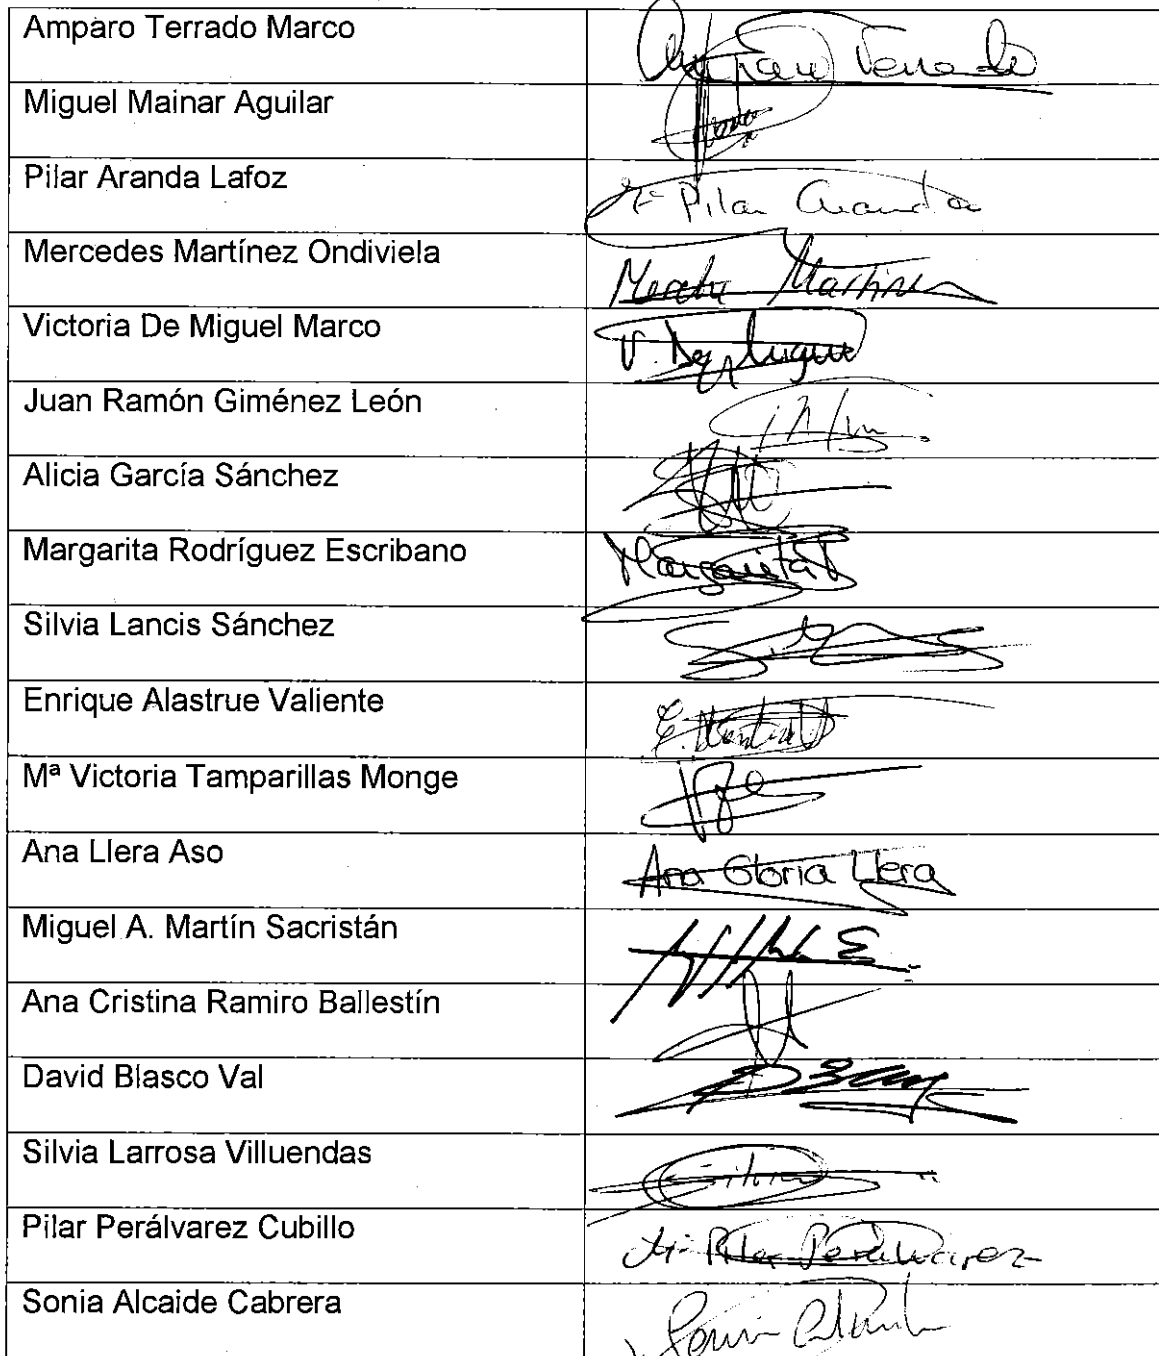 Amparo Terrado Marco
Amparo Terrado
Miguel Mainar Aguilar
Pilar Aranda Lafoz
Mª Pilar Aranda
Mercedes Martínez Ondiviela
Martínez
Victoria De Miguel Marco
V. De Miguel
Juan Ramón Giménez León
Alicia García Sánchez
Margarita Rodríguez Escribano
Margarita
Silvia Lancis Sánchez
Enrique Alastrue Valiente
Mª Victoria Tamparillas Monge
Ana Llera Aso
Ana Gloria Llera
Miguel A. Martín Sacristán
Ana Cristina Ramiro Ballestín
David Blasco Val
Silvia Larrosa Villuendas
Silvia
Pilar Perálvarez Cubillo
Mª Pilar Perálvarez
Sonia Alcaide Cabrera
Sonia